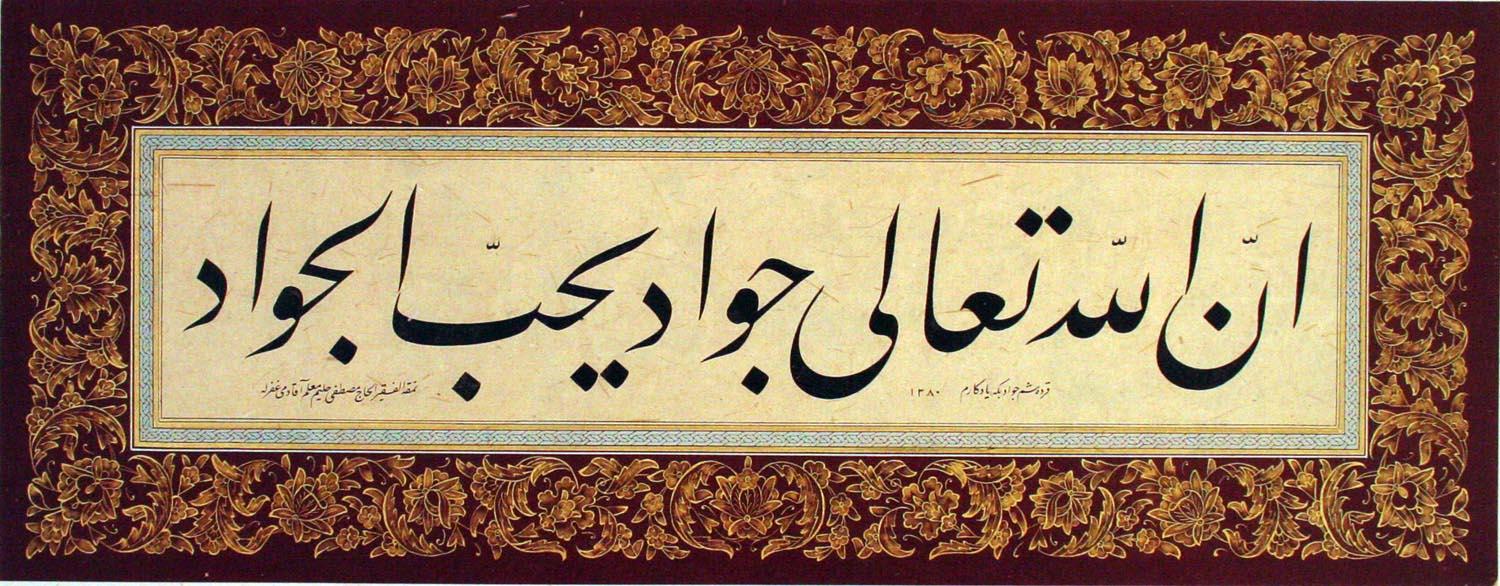 انّ اللّه تعالى جواد يحبّ الجواد
قردەشم جواد بكه يادكارم ١٣٨٠
نمقه الفقير الحاج مصطفى حليم معلم آقادمى غفرله